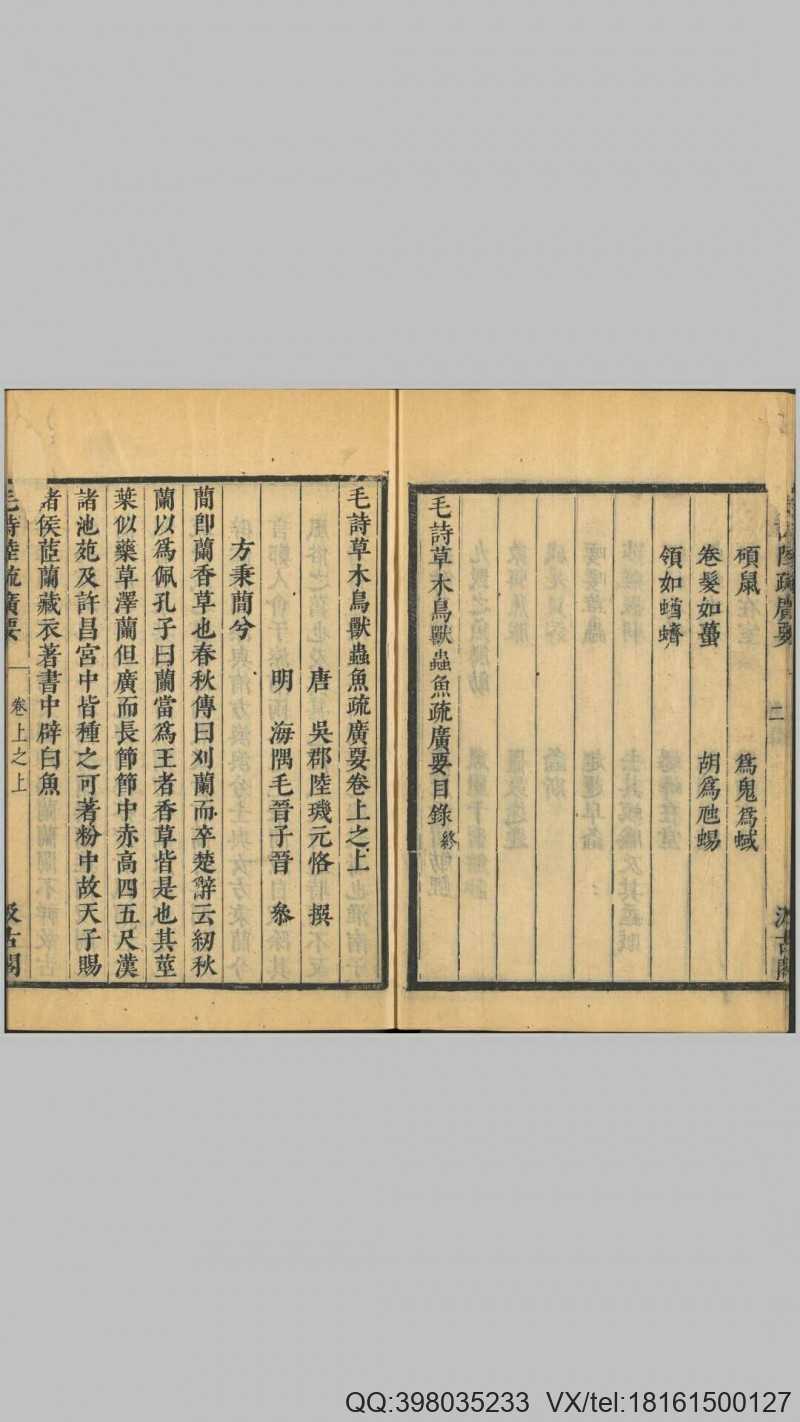 陸疏廣要
二
汲古閣
碩鼠
爲鬼爲蜮
卷髮如蠆
胡爲虺蜴
領如蝤蠐
毛詩草木鳥獸蟲魚疏廣要目錄終
毛詩草木鳥獸蟲魚疏廣要卷上之上
唐 吳郡陸璣元恪 撰
明 海隅毛晉子晉 參
方秉蕑兮
蕑即蘭香草也春秋傳曰刈蘭而卒楚辭云紉秋
蘭以爲佩孔子曰蘭當爲王者香草皆是也其莖
葉似藥草澤蘭但廣而長節節中赤高四五尺漢
諸池苑及許昌宮中皆種之可著粉中故天子賜
諸侯茝蘭藏衣著書中辟白魚
毛詩陸疏廣要
卷上之上
汲古閣
QQ:398035233 VX/tel:18161500127